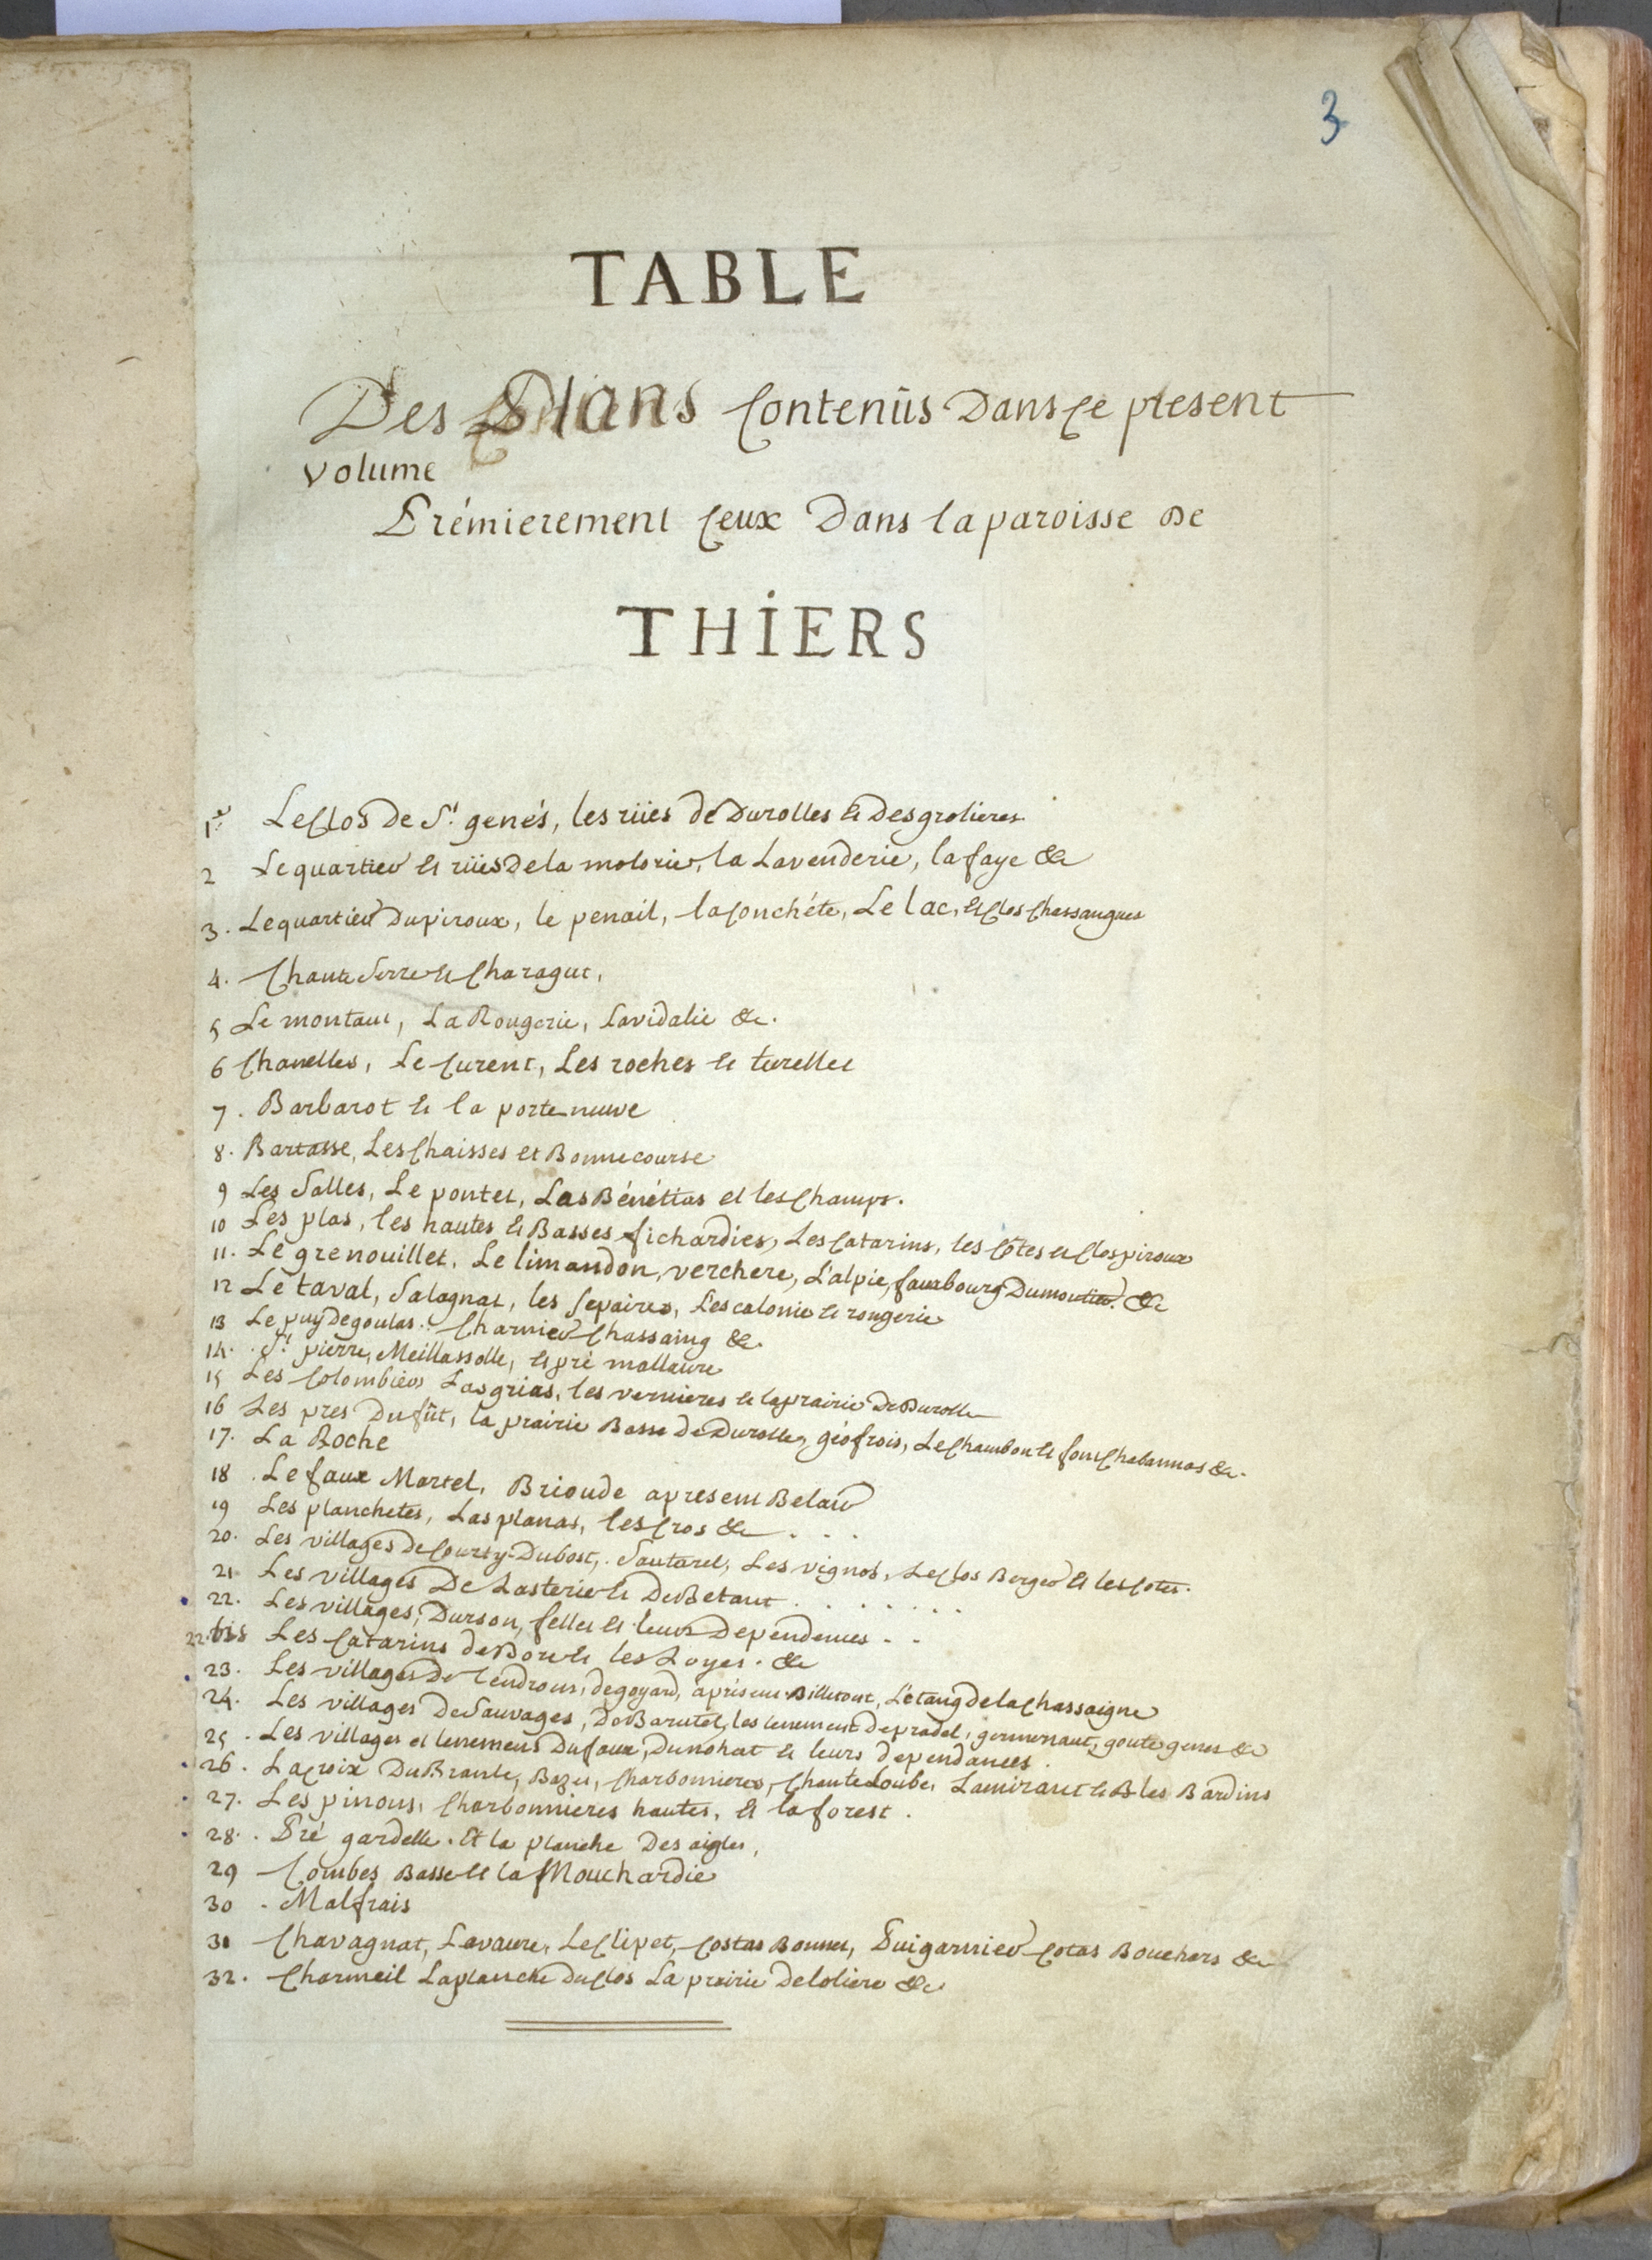 3
TABLE
Des Plans Contenûs Dans Ce present
volume
Prémierement Ceux Dans la paroisse De
THIERS
1er Le Clos De St. genés, les rües de Durolles & Des grolieres
2 Le quartier & rües De la molorie, la Lavenderie, la faye &c
3. Le quartier Du piroux, le penail, la Conchéte, Le lac, & Clos Chassaigues
4. Chante Serre & Charagut,
5 Le montaut, La Rougerie, Lavidalie &c.
6 Chanelles, Le Curent, Les roches & turelles
7. Barbarot & la porte neuve
8. Bartasse, Les Chaisses et Bonnecourse
9 Les Salles, Le pontet, Las Bénétias et les Champs.
10 Les plas, les hautes & Basses fichardies, Les Catarins, les Côtes & Clos piroux
11. Le grenouillet, Le limandon, verchere, L'alpie, fauxbourg Dumoutier. &c
12 Le taval, Salagnat, les Sepaires, Lescalonie & rougerie
13 Le puy de goulas. Charnier Chassaing &c.
14. St. pierre, Meillassolle, & pré mallaure
15 Les Colombiers Las grias, les vernieres & la prairie De Durolle
16 Les pres Dufût, la prairie Basse De Durolle, géofrois, Le Chambon & font Chabannas &c.
17. La Roche
18. Le faux Martel, Brioude apresent Belair
19 Les planchetes, Las planas, les Cros &c . . .
20. Les villages de Courty-Dubost, Sautarel, Les vignos, Le Clos Berger & les Cotes.
21 Les villages De Lasterie & De Betant . . . . . . .
22. Les villages, Durson, felles & leurs Dependences . .
22. bis Les Catarins de Dore & les Loyes. &c
23. Les villages De tendrons, de goyard, apresent Billetout, L'etang de la Chassaigne
24. Les villages De Sauvages, De Barutel, les tenement de pradel, germenaut, goute genes &c
25. Les villages et tenemens Dufaux, Dunohat & leurs dependances.
26. La Croix Du Brante, Bazes, Charbonnieres, Chanteloube, Lamirant & les Bardins
27. Les pinons, Charbonnieres hautes, & la forest.
28. Pré gardelle. Et la planche Des aigles,
29 Combes Basse & la Mouchardie
30. Malfrais
31 Chavagnat, Lavaure, Le Clipet, Costas Bonnet, Puigarnier Cotas Bouchers &c
32. Charmeil La planche du Clos La prairie de loliere &c